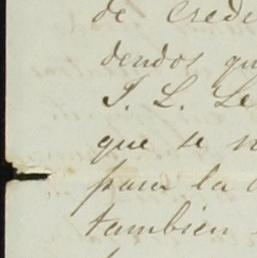 de Crede
dendos qu
J. L. Le
que se n
para la
tambien